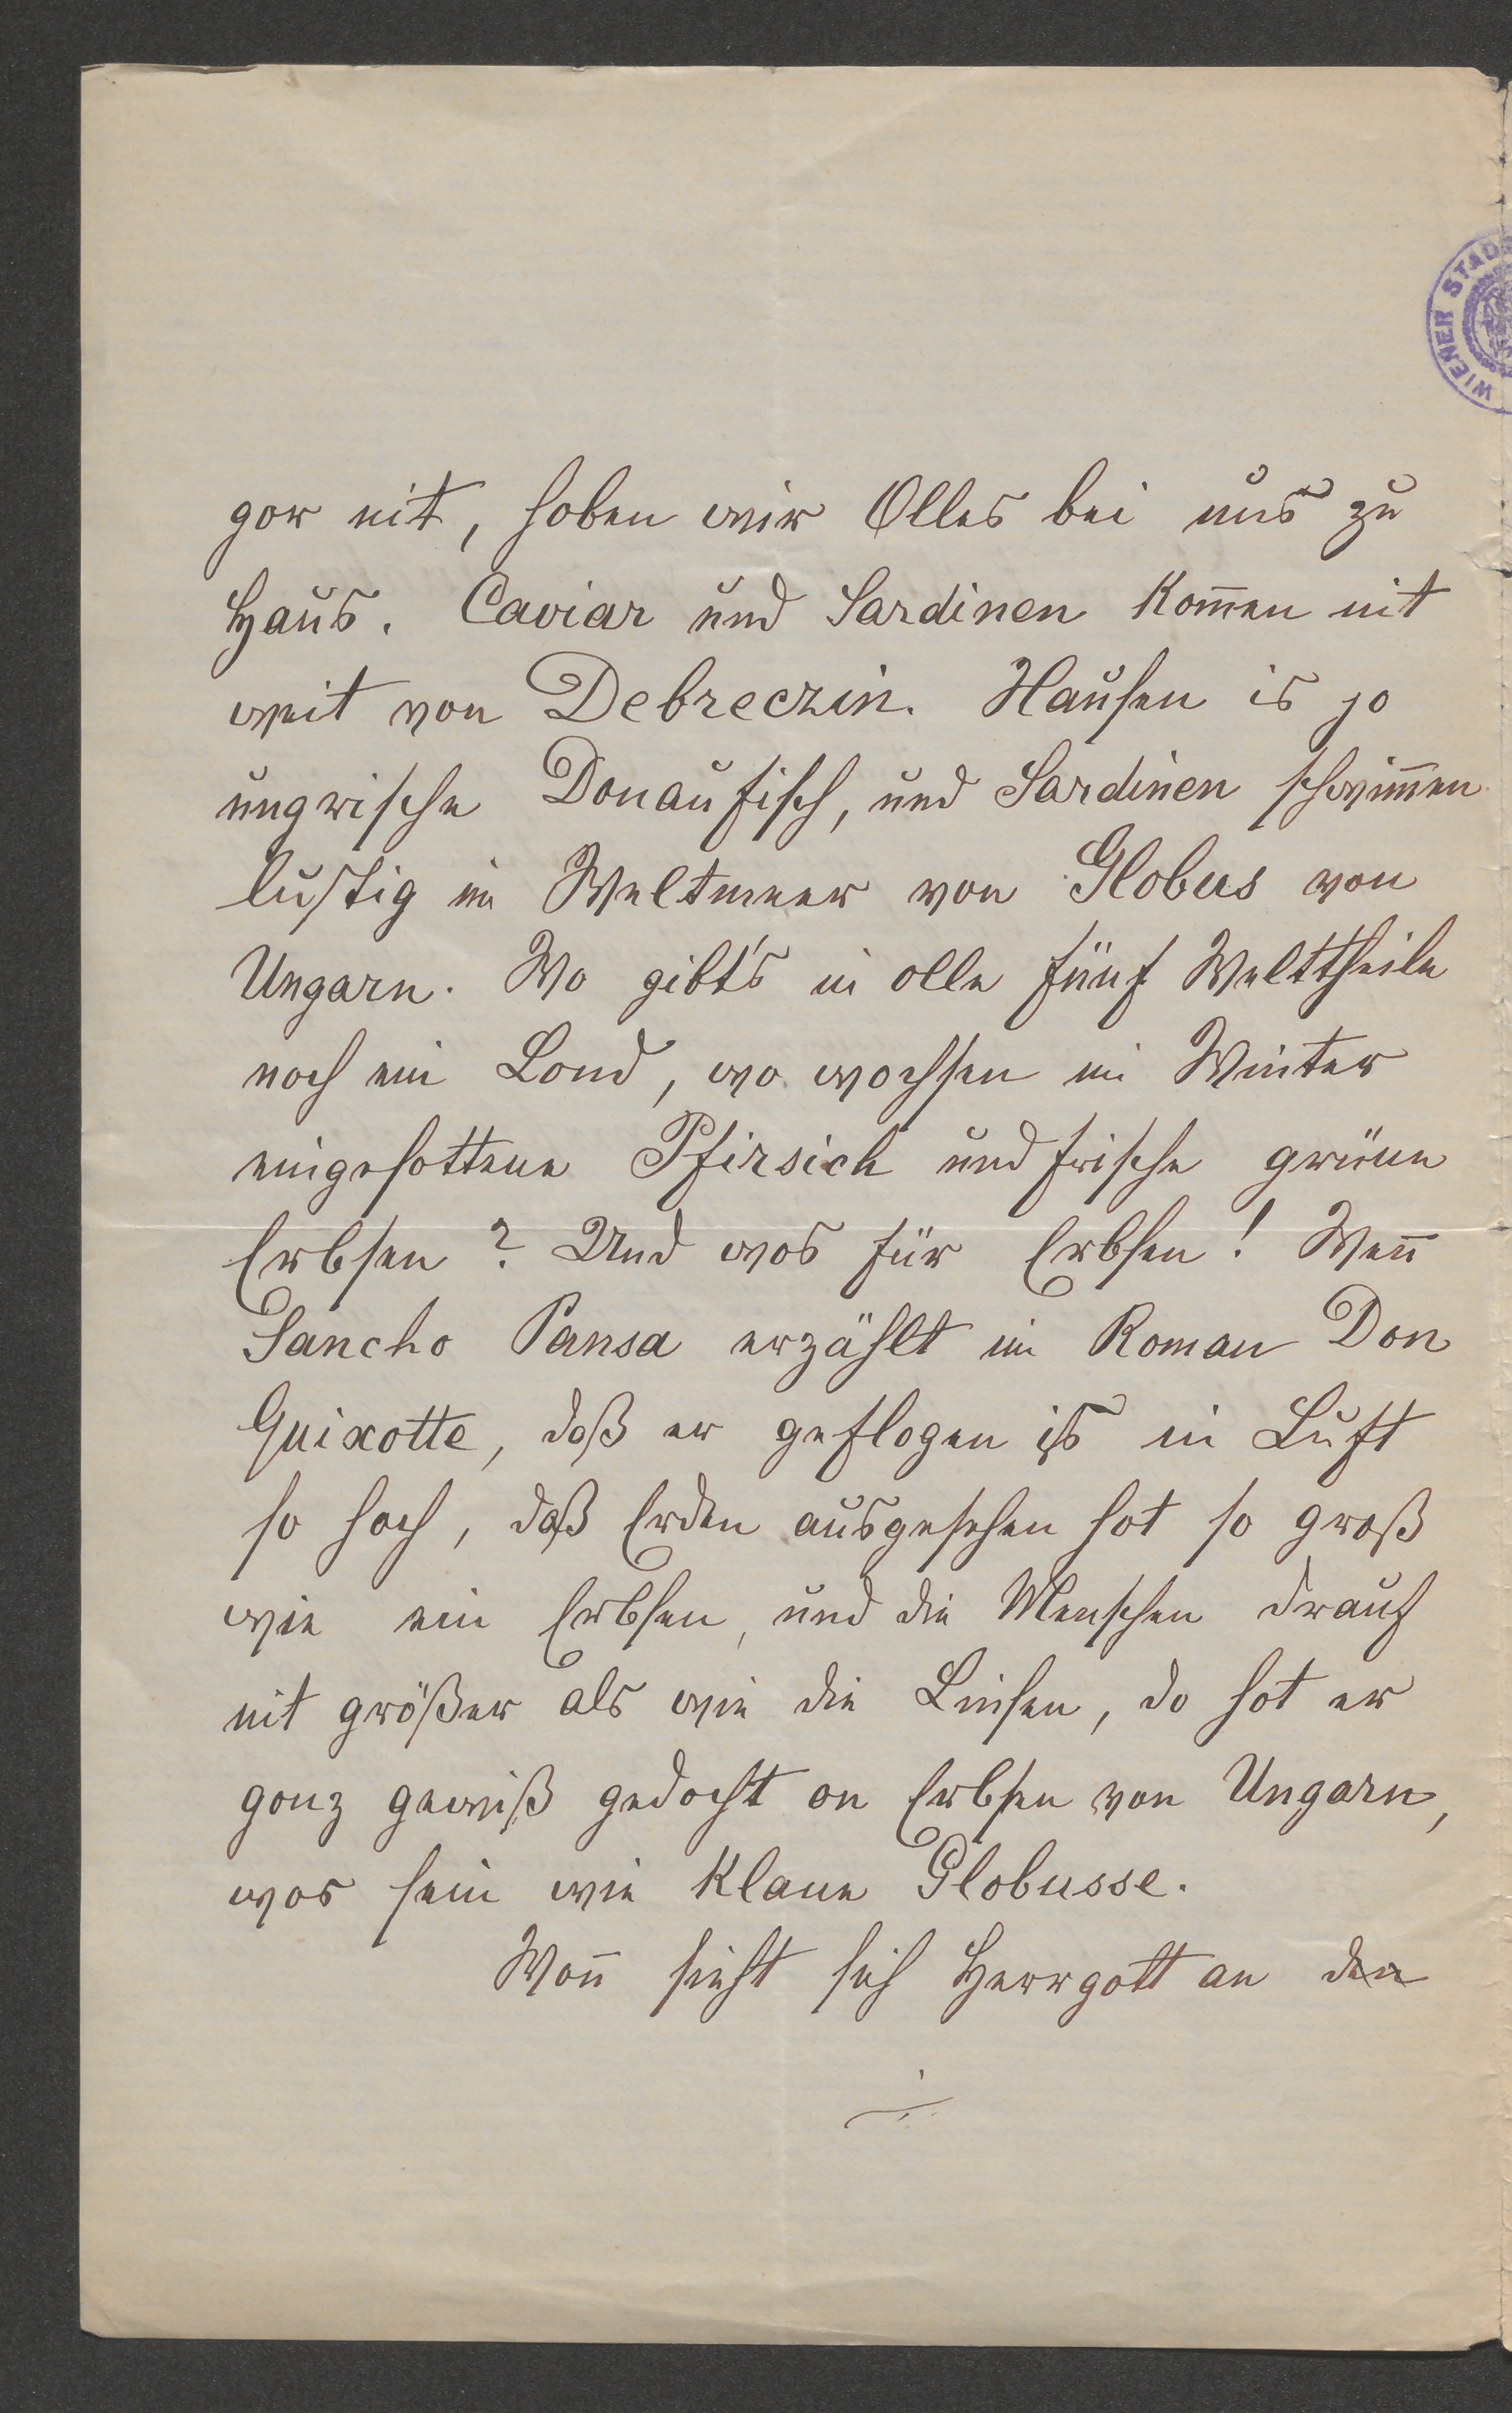 WIENER STAD
gor nit, hoben wir Olles bei uns zu
Haus. Caviar und Sardinen kom̅en nit
weit von Debreczin. Hausen is jo
ungrische Donaufisch, und Sardinen schwim̅en
lustig im Weltmeer von Globus von
Ungarn. Wo gibt's in olle fünf Welttheile
noch ein Lond, wo wochsen im Winter
eingesottene Pfirsich und frische grüne
Erbsen? Und wos für Erbsen! Wen̅
Sancho Pansa erzählt im Roman Don
Quixotte, doß er geflogen is in Luft
so hoch, daß Erden ausgesehen hot so groß
wie ein Erbsen, und die Menschen drauf
nit größer als wie die Linsen, do hot er
gonz gewiß gedocht on Erbsen von Ungarn,
wos sein wie klane Globusse.
Won̅ sieht sich Herrgott an den